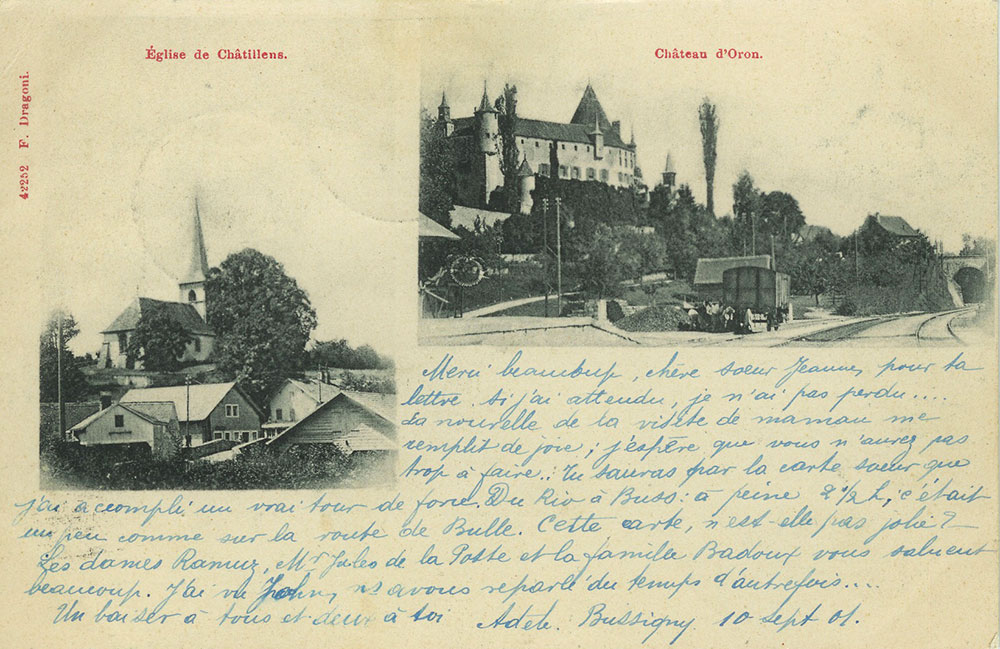 Église de Châtillens.
Château d'Oron.
42252 F. Dragoni.
Merci beaucoup, chère sœur Jeanne, pour ta
lettre. Si j'ai attendu, je n'ai pas perdu....
La nouvelle de la visite de maman me
remplit de joie; j'espère que vous n'aurez pas
trop à faire.. Tu sauras par la carte sœur que
j'ai accompli un vrai tour de force. Du Riv à Buss: à peine 2 1/2 h; c'était
un peu comme sur la route de Bulle. Cette carte, n'est-elle pas jolie?
Les dames Ramuz, Mr Jules de la Poste et la famille Badoux vous saluent
beaucoup. J'ai vu John, ns avons reparlé du temps d'autrefois....
Un baiser à tous et deux à toi Adèle. Bussigny 10 sept 01.